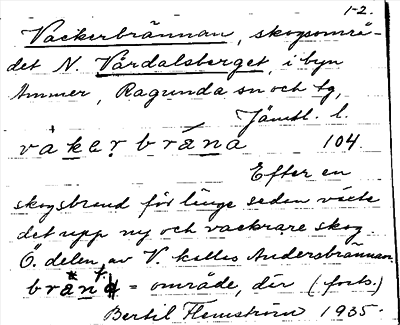 1-2.
Vackerbrännan, skogsområ-
det N. Vårdalsberget, i byn
Ammer, Ragunda sn och tg,
Jämtl. l.
vakẹr bräna 104.
Efter en
skogsbrand för länge sedan växte
det upp ny och vackrare skog.
Ö. delen av V. kallas Andersbrännan.
bräna = område, där (forts.)
Bertil Flemström 1935.